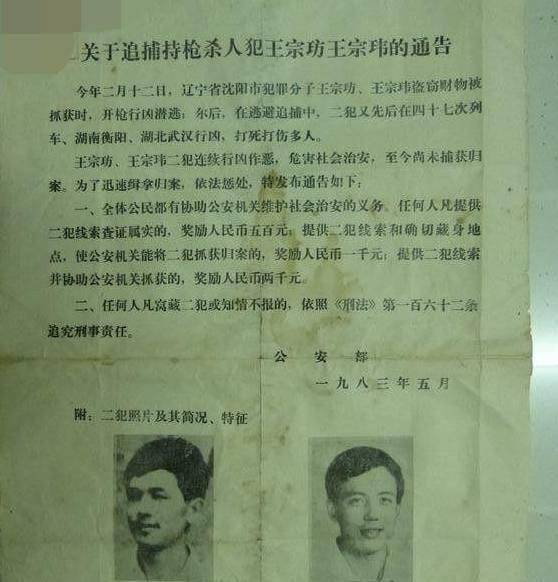 关于追捕持枪杀人犯王宗㓛王宗玮的通告
今年二月十二日，辽宁省沈阳市犯罪分子王宗㓛、王宗玮盗窃财物被
抓获时，开枪行凶潜逃；尔后，在逃避追捕中，二犯又先后在四十七次列
车、湖南衡阳、湖北武汉行凶，打死打伤多人。
王宗㓛、王宗玮二犯连续行凶作恶，危害社会治安，至今尚未捕获归
案。为了迅速缉拿归案，依法惩处，特发布通告如下：
一、全体公民都有协助公安机关维护社会治安的义务。任何人凡提供
二犯线索查证属实的，奖励人民币五百元；提供二犯线索和确切藏身地
点，使公安机关能将二犯抓获归案的，奖励人民币一千元；提供二犯线索
并协助公安机关抓获的，奖励人民币两千元。
二、任何人凡窝藏二犯或知情不报的，依照《刑法》第一百六十二条
追究刑事责任。
公安部
一九八三年五月
附：二犯照片及其简况、特征